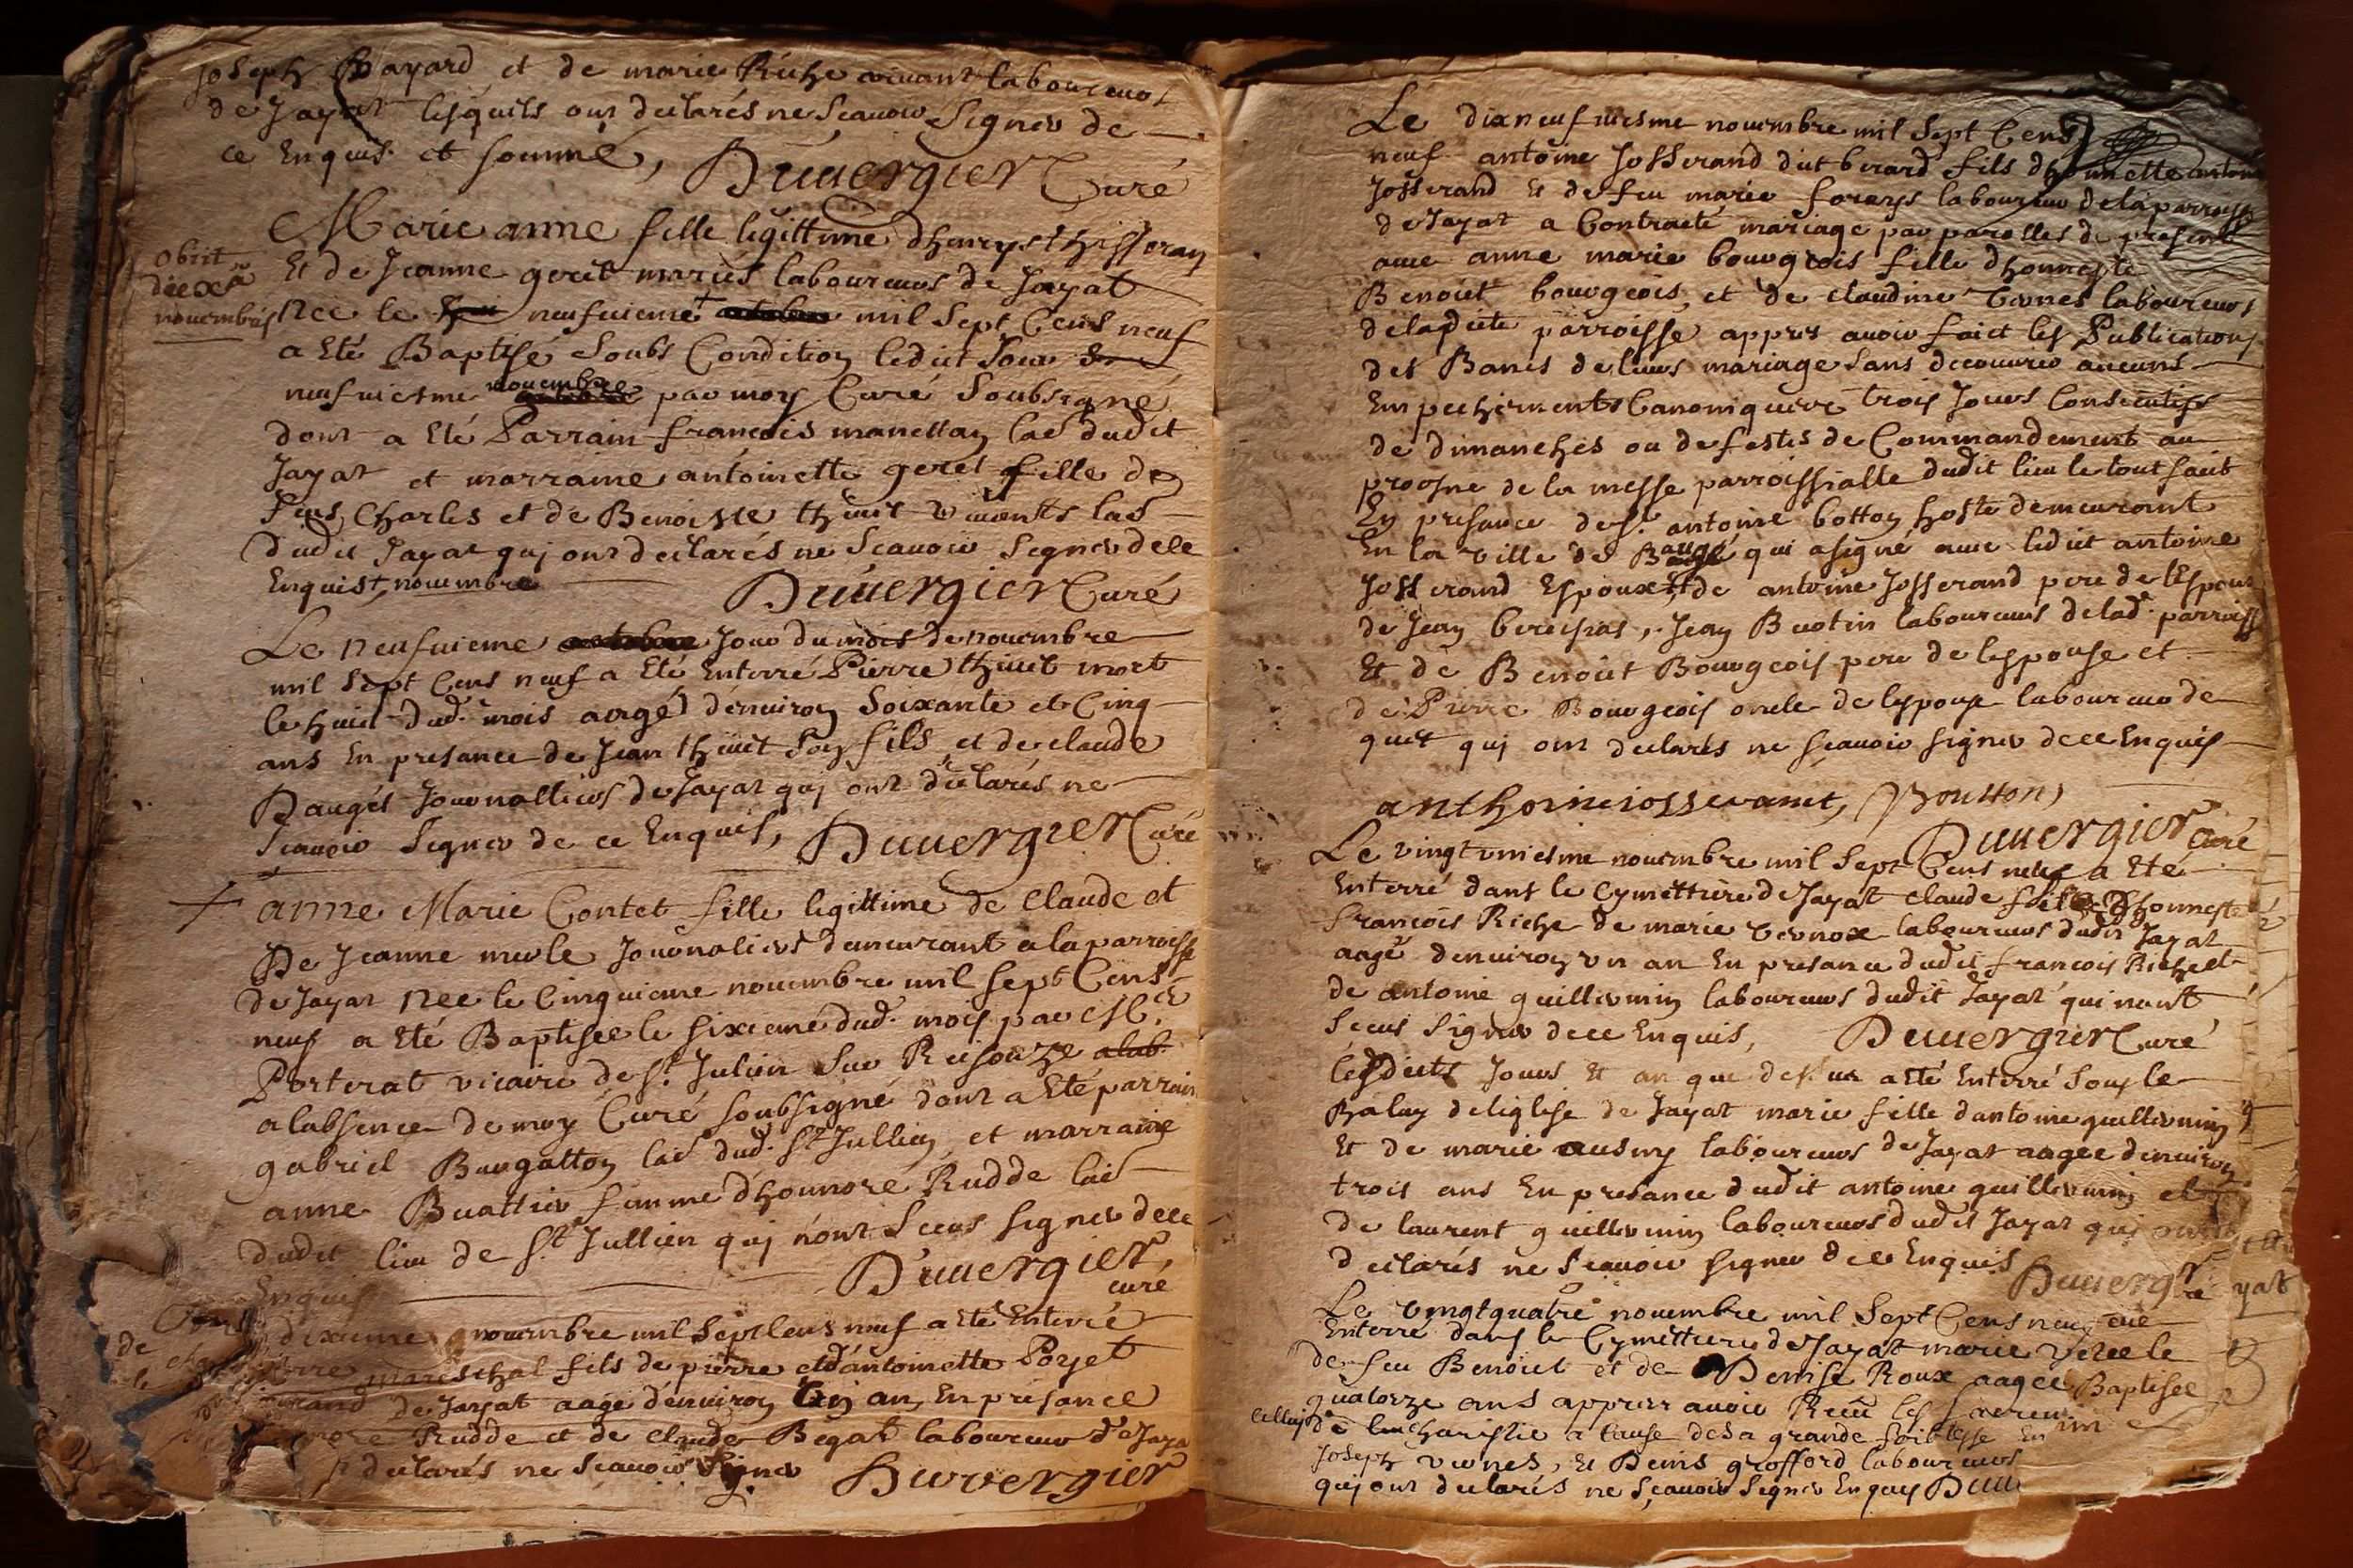 Joseph Bayard et de marie Riche vivants laboureurs
de Jayat lesquels ont declarés ne Scavoir Signer de
ce Enquis et sommé, Duuergier Curé
Marie anne fille legittime dhenrys thisseran
Et de Jeanne geret mariés laboureurs de Jayat
obiit
die xa
nouembris
née le neufuieme + mil Sept Cens neuf
a Eté Baptisé Soubs Condition ledict Jour
neufuiesme nouembre par moy Curé Soubsigné
dont a Eté Parrain francois manettaz lad dudit
Jayat et marraine antoinette geret fille de
feus Charles et de Benoiste thuict viuants lad
dudit Jayat quj ont declarés ne Scauoir Signer dece
Enquis + nouembre Duuergier Curé
Le neufuieme Jour du mois de nouembre
mil Sept Cens neuf a Eté Enterré Pierre thuict mort
le huict dud. mois aagé denuiron Soixante et Cinq
ans En presance de Jean thuict Son fils et de claude
Daugés Journalliers de Jayat quj ont declarés ne
Scauoir Signer de ce Enquis, Duuergier Curé
anne Marie Contet fille legittime de Claude et
De Jeanne merle Journaliers demeurant a la parroisse
de Jayat née le Cinquieme nouembre mil Sept Cens
neuf a Eté Baptisée le sixieme dud. mois par Mre
Porterat vicaire de St. Julien Sur Reisouze
a labsence de moy Curé soubsigné dont a Eté parrain
gabriel Bugattoz lad dud. St Jullien, et marraine
anne Buattier femme dhonnoré Rudde lad
dudit lieu de St Jullien quj nont Sceus signer dece
Enquis Duuergier
curé
dixieme nouembre mil Sept Cens neuf a Eté Enterré
pierre mareschal fils de pierre et dantoinette Poyet
de Jayat aagé denuiron un an, En présance
Rudde et de claude Bégat laboureur de Jaya
declarés ne Scauoir Signer Duvergier
Le dixneufuiesme nouembre mil Sept Cens
neuf antoine Josserand dict berard fils dhonnette antoine
Josserand Et de feu marie forays laboureur de la parroisse
de Jayat a Contracté mariage par parolles de present
auec anne marie bourgeois fille dhonneste
Benoict bourgeois, et de claudine Vernes laboureurs
de ladicte parroisse appres auoir faict les Publications
des Bancs de leurs mariage Sans decouurir aucuns
Empechements Canonique trois Jours Consecutifs
de dimanches ou de festes de Commandement au
prosne de la messe parroissialle dudit lieu le tout faict
En presance de Sr. antoine botton hoste demeurant
En la ville de Baugé qui a signé auec ledict antoine
Josserand Espoux, de antoine Josserand pere de lEspoux
de Jean bereisias, Jean Buotin laboureurs de lad. parroiss
Et de Benoict Bourgeois pere de lespouse et
de Pierre Bourgeois oncle de lespouse laboureur de
quet quj ont declarés ne sçauoir signer dece Enquis
anthoine iosserant, Boutton,
Duuergier curé
Le vingtvniesme nouembre mil Sept Cens neuf a Eté
Enterré dans le Cymettiere de Jayat claude fils dhonneste
francois Riche de marie vernoxe laboureurs dudit Jayat
aagé denuiron vn an En presance dudit francois Riche et
de antoine guillermin laboureurs dudit Jayat qui nont
Sceus Signer dece Enquis, Duuergier Curé
lesdicts Jours Et an que dessus a Eté Enterré sous le
Balay deliglise de Jayat marie fille dantoine guillermin
Et de marie ausny laboureurs de Jayat aagée denuiron
trois ans En presance dudit antoine guillermin et
de laurent guillermin laboureurs dudit Jayat quj ont
declarés ne Scauoir signer dece Enquis Duuerg
Le vingtquatre nouembre mil Sept Cens neuf
Enterré dans le Cymettiere de Jayat marie
de feu Benoict et de Denise Roux aagée
quatorze ans appres auoir Receu les
de leucharistie a Cause de Sa grande foiblesse En
Joseph vernes, Et Denis grofford laboureurs
quj ont declarés ne Sçauoir Signer Enquis Duu
yat
Baptisée